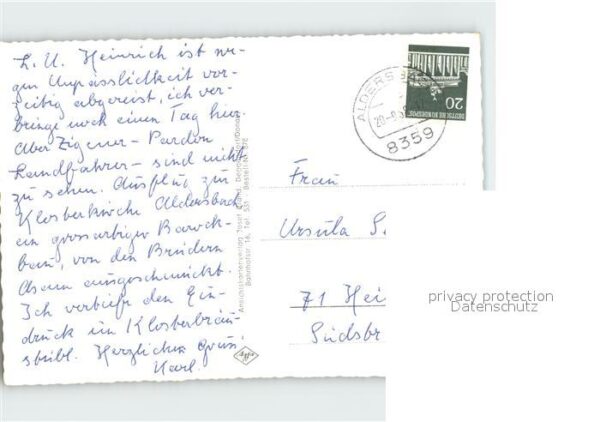 L. U. Heinrich ist we-
gen Unpässlichkeit vor-
zeitig abgereist, ich ver-
bringe noch einen Tag hier
aber Zigeuner - Pardon
Landfahrer - sind nicht
zu sehen. Ausflug zur
Klosterkirche Aldersbach
ein grossartiger Barock-
bau, von den Brüdern
Asam ausgeschmückt.
Ich vertiefe den Ein-
druck im Klosterbräu-
stübl. Herzlichen Gruss
Karl.
Ansichtskartenverlag Josef
Bahnhofstr. 16, Tel. 531
Agfa
ALDERSBACH
8359
20
DEUTSCHE BUNDESPOST
Frau
Ursula S.
71 Hei
Südsb
privacy protection
Datenschutz